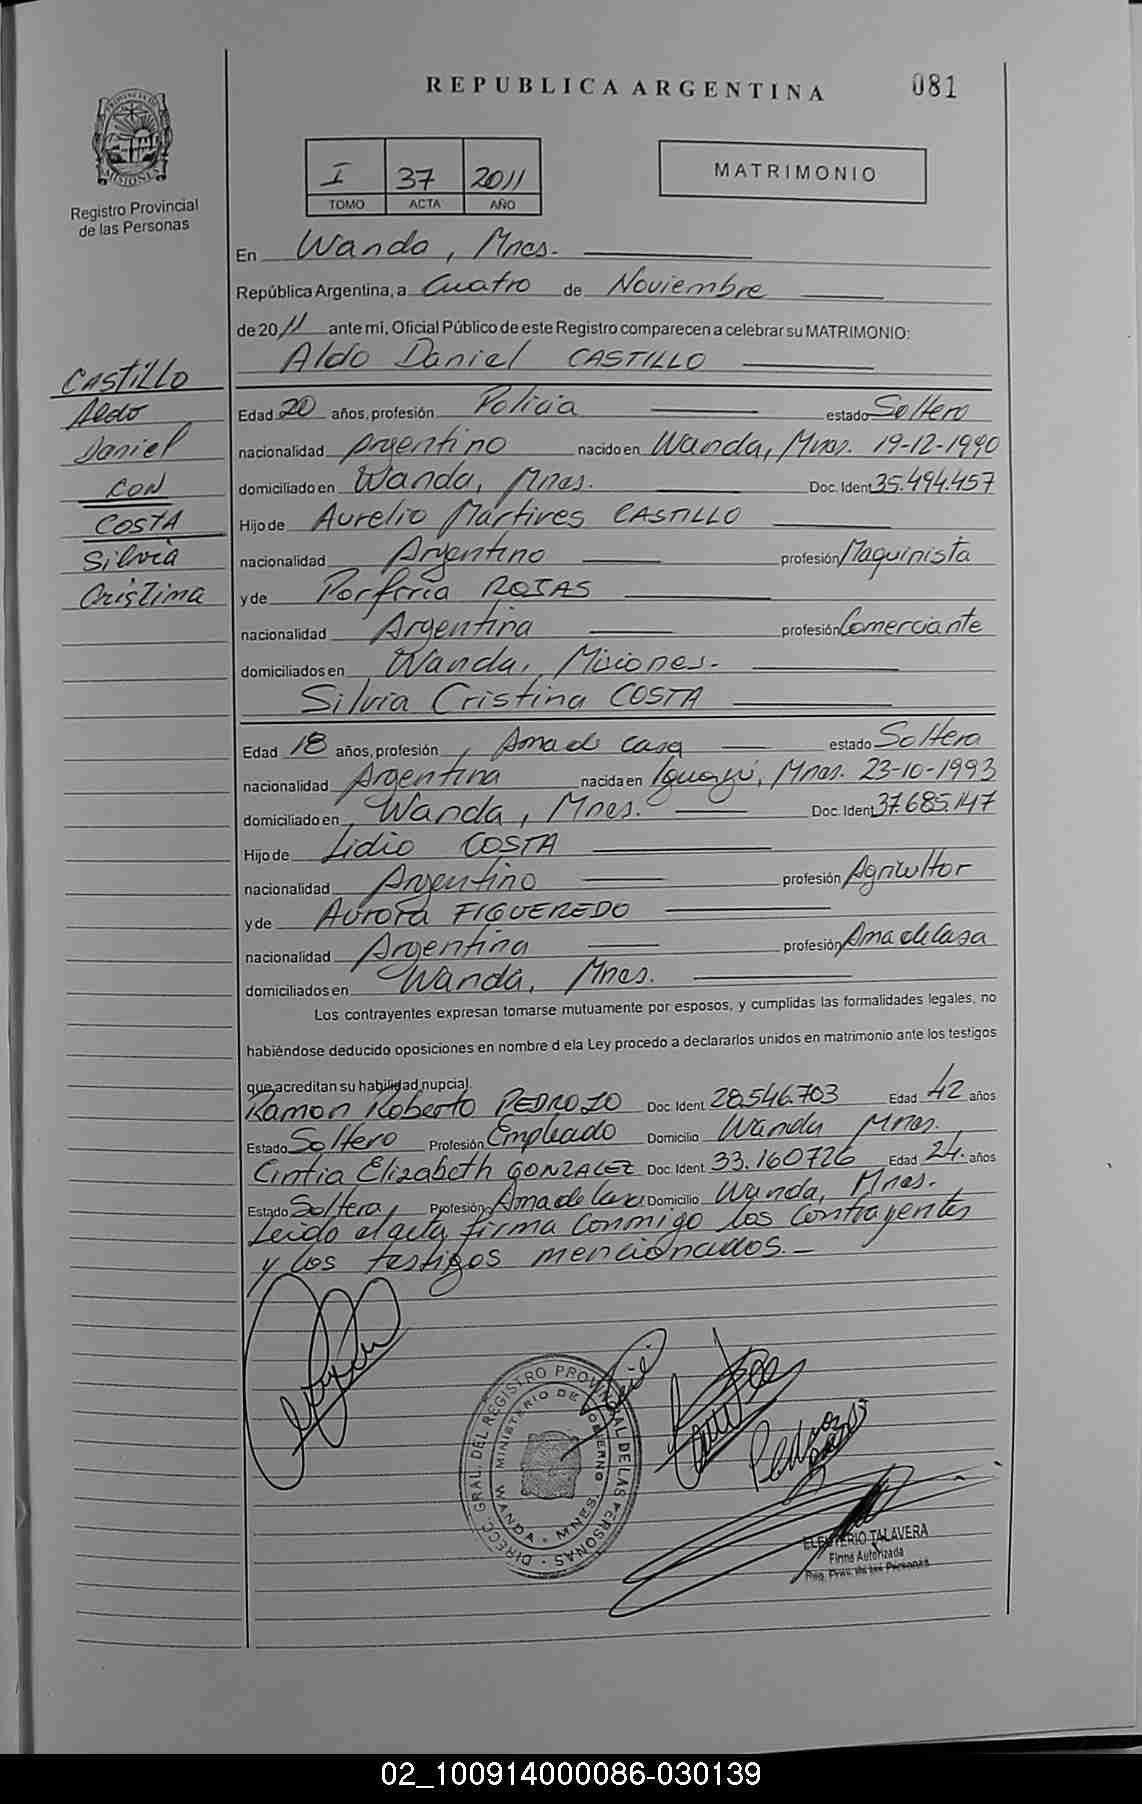 REPUBLICA ARGENTINA
081
PROVINCIA DE
MISIONES
Registro Provincial
de las Personas
I 37 2011
TOMO ACTA AÑO
MATRIMONIO
En Wanda, Mnes.
República Argentina, a Cuatro de Noviembre
de 2011 ante mi, Oficial Público de este Registro comparecen a celebrar su MATRIMONIO:
Aldo Daniel CASTILLO
CASTILLO
Aldo
Daniel
CON
COSTA
Silvia
Cristina
Edad 20 años, profesión Policia estado Soltero
nacionalidad Argentino nacido en Wanda, Mnes. 19-12-1990
domiciliado en Wanda, Mnes. Doc. Ident 35.494.457
Hijo de Aurelio Martires CASTILLO
nacionalidad Argentino profesión Maquinista
y de Porfiria ROJAS
nacionalidad Argentina profesión Comerciante
domiciliados en Wanda, Misiones.
Silvia Cristina COSTA
Edad 18 años, profesión Ama de casa estado Soltera
nacionalidad Argentina nacida en Iguazú, Mnes. 23-10-1993
domiciliado en Wanda, Mnes. Doc. Ident 37.685.147
Hijo de Lidio COSTA
nacionalidad Argentino profesión Agricultor
y de Aurora FIGUEREDO
nacionalidad Argentina profesión Ama de Casa
domiciliados en Wanda, Mnes.
Los contrayentes expresan tomarse mutuamente por esposos, y cumplidas las formalidades legales, no
habiéndose deducido oposiciones en nombre d ela Ley procedo a declararlos unidos en matrimonio ante los testigos
que acreditan su habilidad nupcial.
Ramon Roberto PEDROZO Doc. Ident 28.546.703 Edad 42 años
Estado Soltero Profesión Empleado Domicilio Wanda Mnes.
Cintia Elizabeth GONZALEZ Doc. Ident 33.160726 Edad 24. años
Estado Soltera Profesión Ama de Casa Domicilio Wanda, Mnes.
Leido el acta, firma conmigo los contrayentes
y los testigos mencionados.-
DIRECC. GRAL. DEL REGISTRO PROVINCIAL DE LAS PERSONAS
MINISTERIO DE GOBIERNO
WANDA - MNES.
ELEUTERIO TALAVERA
Firma Autorizada
Reg. Prov. de las Personas
02_100914000086-030139